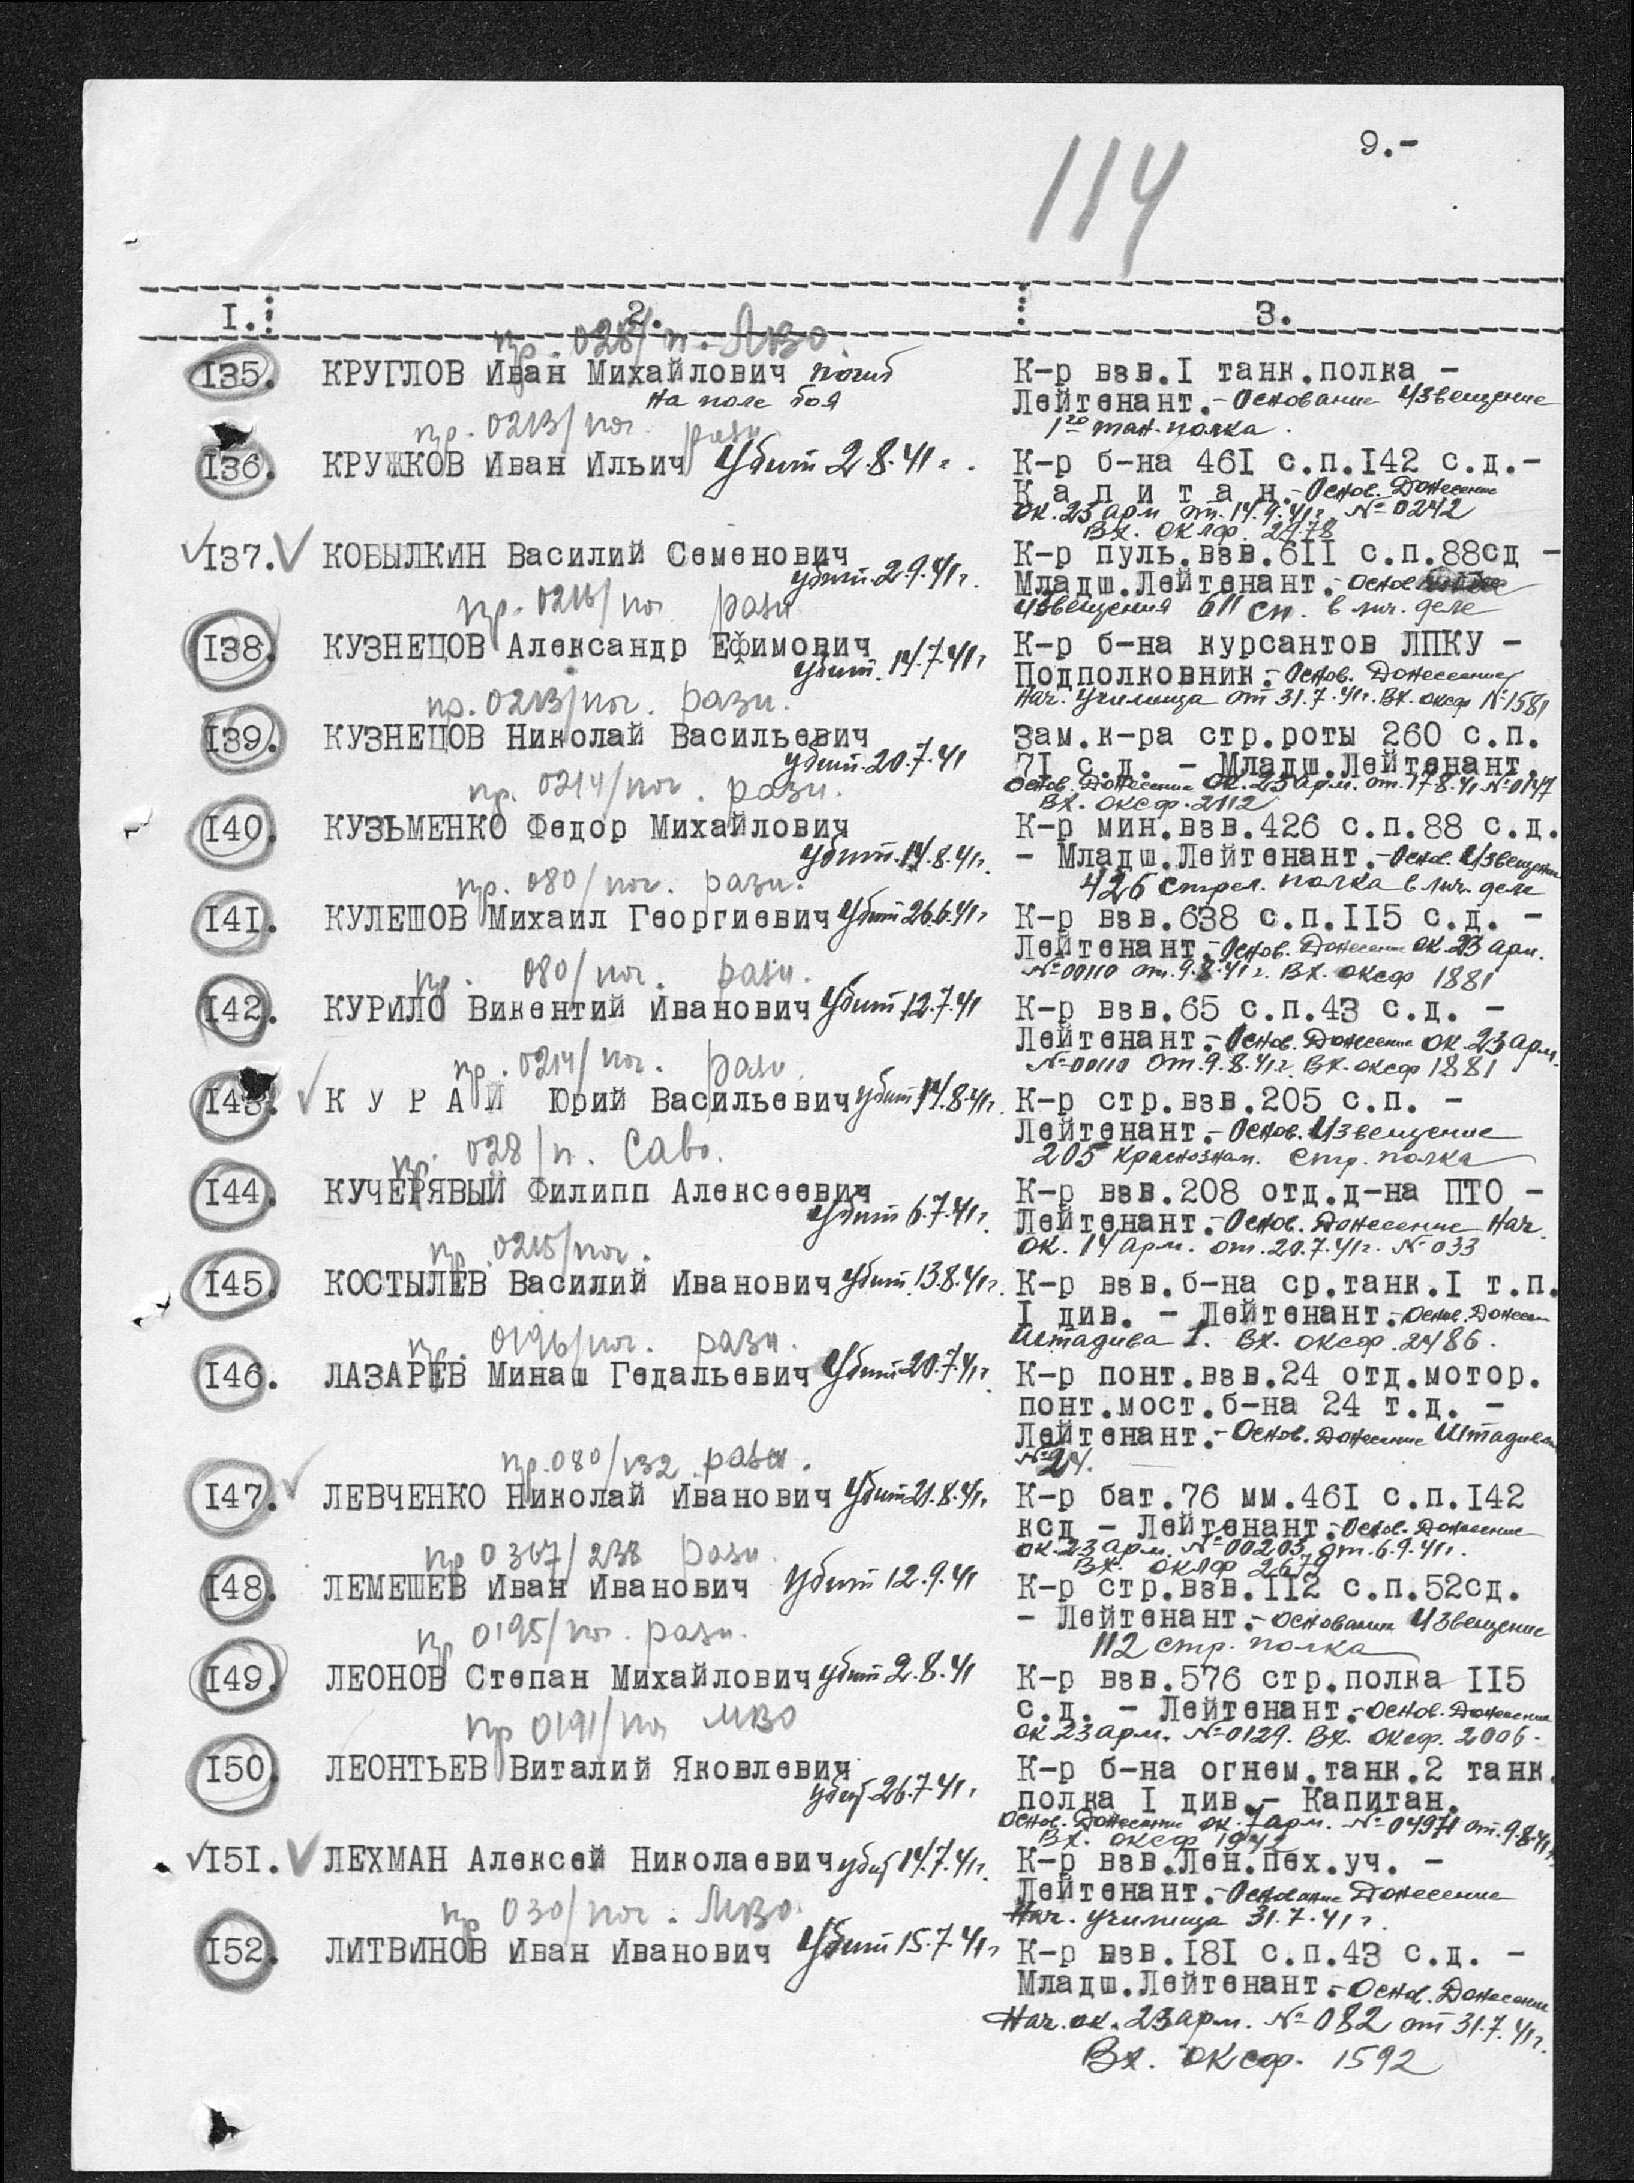 9.-
114
I. 2. 3.
пр. 028/п. ЛВО.
I35. КРУГЛОВ Иван Михайлович погиб К-р взв.I танк.полка -
на поле боя Лейтенант.- Основание Извещение
1го тан. полка.
пр. 0213/пог. разн.
I36. КРУЖКОВ Иван Ильич Убит 2.8.41г. К-р б-на 46I с.п.I42 с.д.-
К а п и т а н.- Основ. Донесение
ок. 23 арм от. 14.9.41г. № 0242
Вх. оклф. 2478
I37. КОБЫЛКИН Василий Семенович К-р пуль.взв.6II с.п.88сд -
убит. 2.9.41г. Младш.Лейтенант.- Основ
извещения 611 сп. в лич. деле
пр. 0216/пог разн
I38. КУЗНЕЦОВ Александр Ефимович К-р б-на курсантов ЛПКУ -
Убит. 14.7.41г. Подполковник.- Основ. Донесение
Нач. Училища от 31.7.41г. Вх. оксф № 1581
пр. 0213/пог. разн.
I39. КУЗНЕЦОВ Николай Васильевич Зам.к-ра стр.роты 260 с.п.
убит. 20.7.41 7I с.д. - Младш.Лейтенант.
Основ. Донесение ок. 23 арм. от. 17.8.41 № 0147
Вх. оксф. 2112
пр. 0214/пог. разн.
I40. КУЗЬМЕНКО Федор Михайлович К-р мин.взв.426 с.п.88 с.д.
Убит. 14.8.41г. - Младш.Лейтенант.- Основ. Извещение
426 стрел. полка в лич. деле
пр. 080/пог. разн.
I4I. КУЛЕШОВ Михаил Георгиевич Убит 26.6.41г К-р взв.638 с.п.II5 с.д. -
Лейтенант.- Основ. Донесение ок. 23 арм.
№ 00110 от. 9.8.41г. Вх. оксф 1881
пр. 080/пог. разн.
I42. КУРИЛО Викентий Иванович Убит 12.7.41 К-р взв.65 с.п.43 с.д. -
Лейтенант.- Основ. Донесение ок 23 арм.
№ 00110 от. 9.8.41г. Вх. оксф 1881
пр. 0214/пог. разн.
I43. К У Р А Й Юрий Васильевич убит 14.8.41г. К-р стр.взв.205 с.п. -
Лейтенант.- Основ. Извещение
205 Краснознам. стр. полка
пр. 028/п. Саво.
I44. КУЧЕРЯВЫЙ Филипп Алексеевич К-р взв.208 отд.д-на ПТО -
Убит 6.7.41г. Лейтенант.- Основ. Донесение Нач.
ок. 14 арм. от. 20.7.41г. № 033
пр. 0215/пог.
I45. КОСТЫЛЕВ Василий Иванович Убит. 13.8.41г. К-р взв.б-на ср.танк.I т.п.
I див. - Лейтенант.- Основ. Донесен
Штадива 1. Вх. оксф. 2486.
пр. 0196/пог. разн.
I46. ЛАЗАРЕВ Минаш Гедальевич Убит 20.7.41г К-р понт.взв.24 отд.мотор.
понт.мост.б-на 24 т.д. -
Лейтенант.- Основ. Донесение Штадива
№ 24.
пр. 080/132 разн.
I47. ЛЕВЧЕНКО Николай Иванович Убит 21.8.41г. К-р бат.76 мм.46I с.п.I42
ксд - Лейтенант.- Основ. Донесение
ок. 23 арм. № 00203 от. 6.9.41г.
Вх. оклф 2679
пр 0367/238 разн.
I48. ЛЕМЕШЕВ Иван Иванович Убит 12.9.41 К-р стр.взв.II2 с.п.52сд.
- Лейтенант.- Основании Извещение
112 стр. полка
пр 0195/пог. разн.
I49. ЛЕОНОВ Степан Михайлович убит 2.8.41 К-р взв.576 стр.полка II5
с.д. - Лейтенант.- Основ. Донесение
ок 23 арм. № 0129. Вх. оксф. 2006.
пр 0191/пог МВО
I50. ЛЕОНТЬЕВ Виталий Яковлевич К-р б-на огнем.танк.2 танк.
убит 26.7.41г. полка I див.- Капитан.
Основ. Донесение ок. 7 арм. № 04971 от. 9.8.41г.
Вх. оксф
I5I. ЛЕХМАН Алексей Николаевич убит 14.7.41г. К-р взв.Лен.пех.уч. -
Лейтенант.- Основание Донесение
Нач. училища 31.7.41г.
пр 030/пог. МВО.
I52. ЛИТВИНОВ Иван Иванович Убит 15.7.41г К-р взв.I8I с.п.43 с.д. -
Младш.Лейтенант.- Основ. Донесение
Нач. ок. 23 арм. № 082 от 31.7.41г.
Вх. оксф. 1592